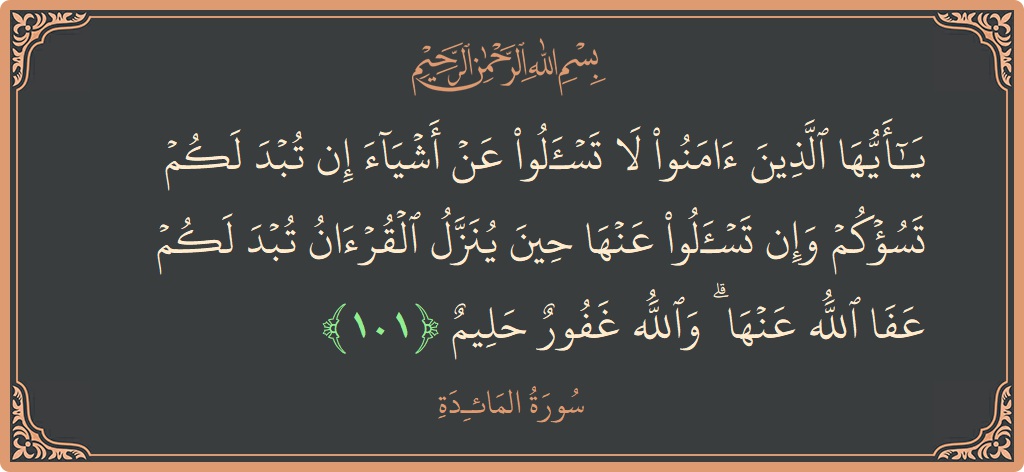 بِسْمِ اللَّهِ الرَّحْمَٰنِ الرَّحِيمِ
يَـٰٓأَيُّهَا ٱلَّذِينَ ءَامَنُوا۟ لَا تَسْـَٔلُوا۟ عَنْ أَشْيَآءَ إِن تُبْدَ لَكُمْ
تَسُؤْكُمْ وَإِن تَسْـَٔلُوا۟ عَنْهَا حِينَ يُنَزَّلُ ٱلْقُرْءَانُ تُبْدَ لَكُمْ
عَفَا ٱللَّهُ عَنْهَا ۗ وَٱللَّهُ غَفُورٌ حَلِيمٌ ﴿١٠١﴾
سُورَةُ المَائـِدَةِ